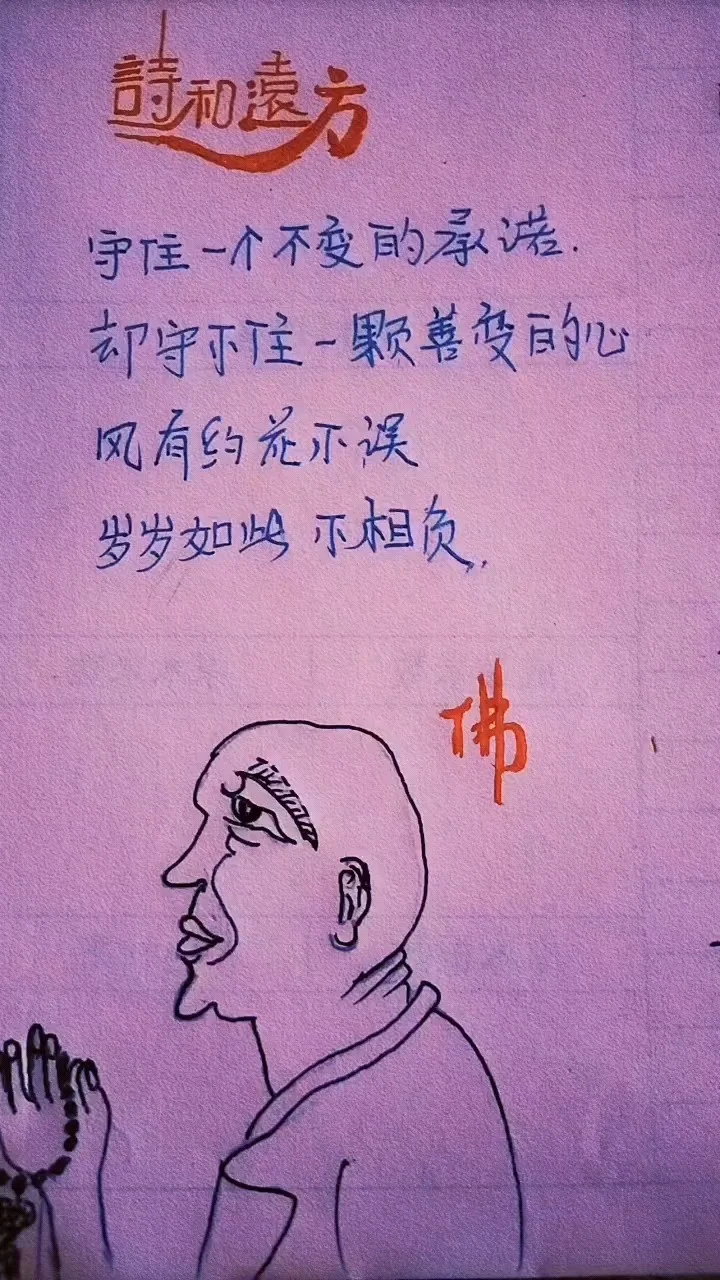 詩和遠方
守住一个不变的承诺.
却守不住一颗善变的心
风有约花不误
岁岁如此 不相负.
佛